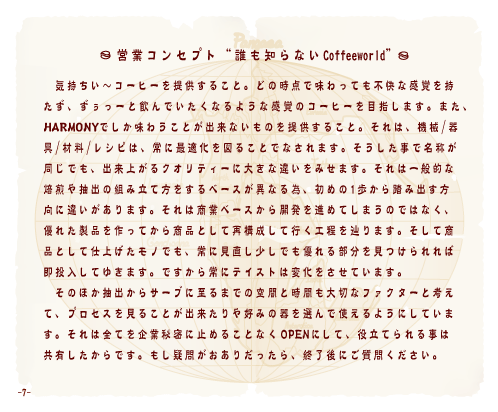 営業コンセプト“誰も知らないCoffeeworld”
気持ちい～コーヒーを提供すること。どの時点で味わっても不快な感覚を持
たず、ずぅっーと飲んでいたくなるような感覚のコーヒーを目指します。また、
HARMONYでしか味わうことが出来ないものを提供すること。それは、機械/器
具/材料/レシピは、常に最適化を図ることでなされます。そうした事で名称が
同じでも、出来上がるクオリティーに大きな違いをみせます。それは一般的な
焙煎や抽出の組み立て方をするベースが異なる為、初めの1歩から踏み出す方
向に違いがあります。それは商業ベースから開発を進めてしまうのではなく、
優れた製品を作ってから商品として再構成して行く工程を辿ります。そして商
品として仕上げたモノでも、常に見直し少しでも優れる部分を見つけられれば
即投入してゆきます。ですから常にテイストは変化をさせています。
そのほか抽出からサーブに至るまでの空間と時間も大切なファクターと考え
て、プロセスを見ることが出来たりや好みの器を選んで使えるようにしていま
す。それは全てを企業秘密に止めることなくOPENにして、役立てられる事は
共有したからです。もし疑問がおありだったら、終了後にご質問ください。
-7-